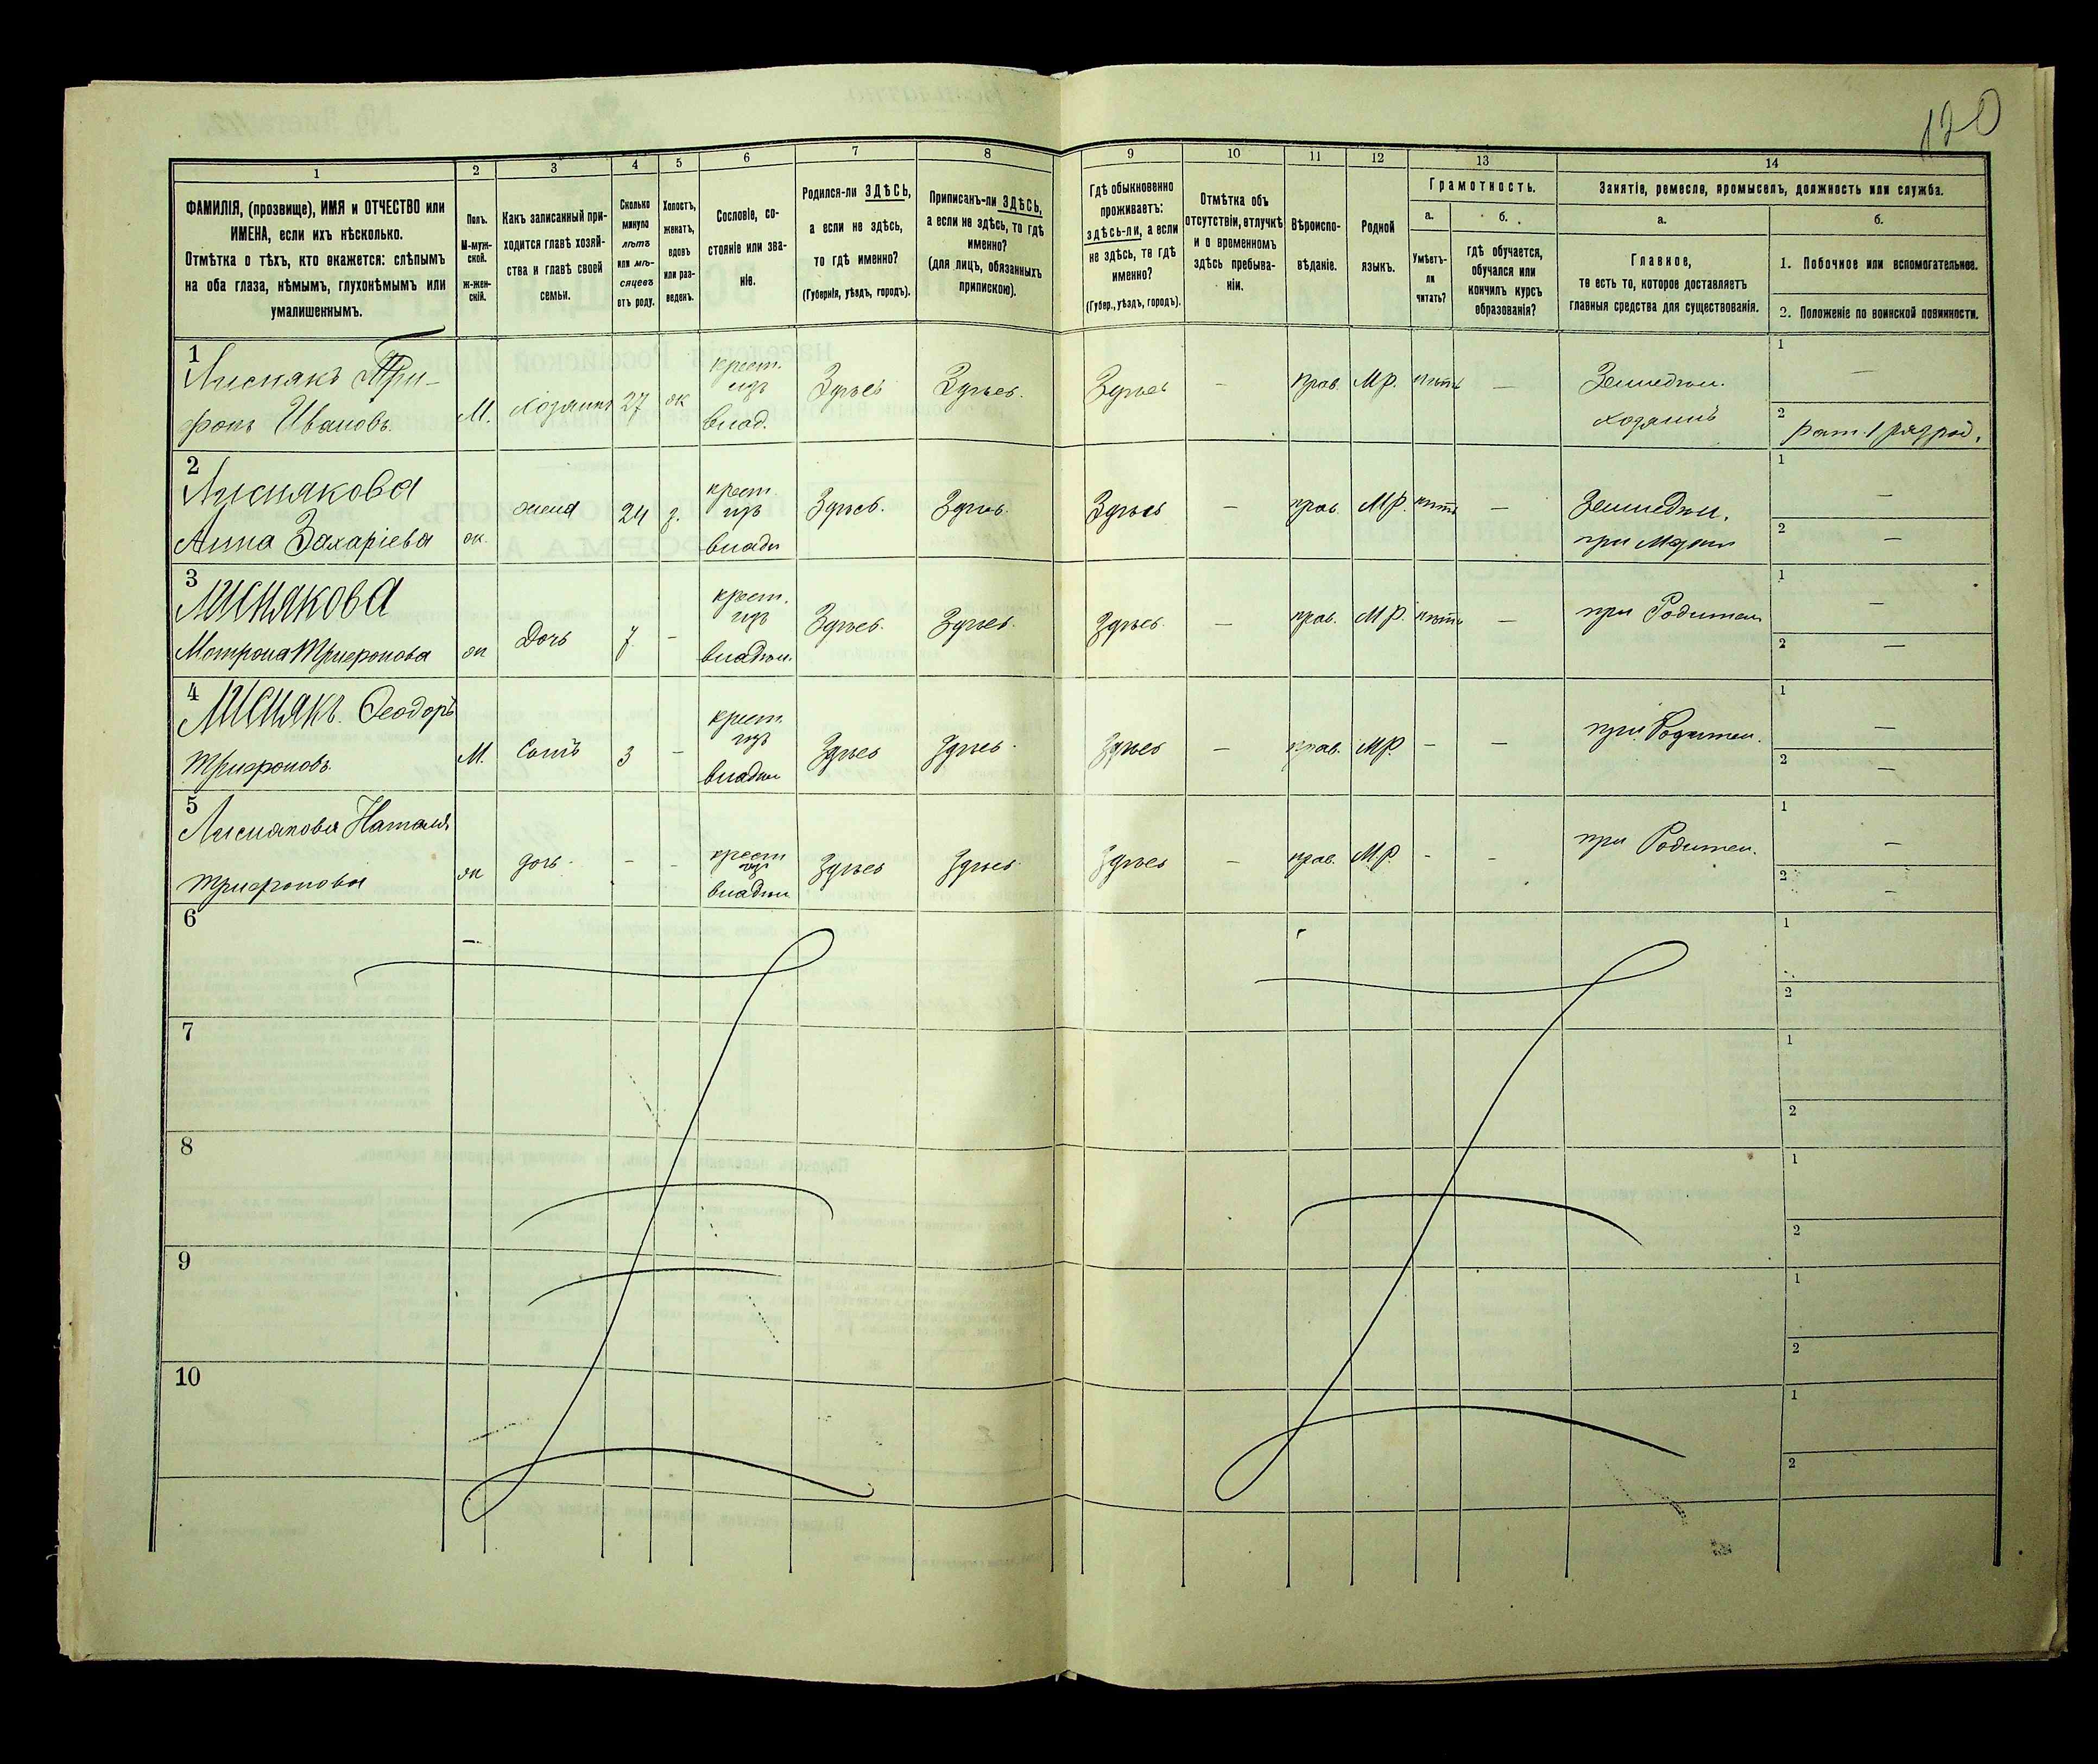 120
1 2 3 4 5 6 7 8 9 10 11 12 13 14
ФАМИЛІЯ, (прозвище), ИМЯ и ОТЧЕСТВО или
ИМЕНА, если ихъ нѣсколько.
Отмѣтка о тѣхъ, кто окажется: слѣпымъ
на оба глаза, нѣмымъ, глухонѣмымъ или
умалишеннымъ.
Полъ.
М-муж-
ской.
Ж-жен-
скій.
Какъ записанный при-
ходится главѣ хозяй-
ства и главѣ своей
семьи.
Сколько
минуло
лѣтъ
или мѣ-
сяцевъ
отъ роду.
Холостъ,
женатъ,
вдовъ
или раз-
веденъ.
Сословіе, со-
стояніе или зва-
ніе.
Родился-ли ЗДѢСЬ,
а если не здѣсь,
то гдѣ именно?
(Губернія, уѣздъ, городъ).
Приписанъ-ли ЗДѢСЬ,
а если не здѣсь, то гдѣ
именно?
(для лицъ, обязанныхъ
припискою).
Гдѣ обыкновенно
проживаетъ:
здѣсь-ли, а если
не здѣсь, то гдѣ
именно?
(Губер., уѣздъ, городъ).
Отмѣтка объ
отсутствіи, отлучкѣ
и о временномъ
здѣсь пребыва-
ніи.
Вѣроиспо-
вѣданіе.
Родной
языкъ.
Грамотность.
а.
Умѣетъ-
ли
читать?
б.
гдѣ обучается,
обучался или
кончилъ курсъ
образованія?
Занятіе, ремесло, промыселъ, должность или служба.
а.
Главное,
то есть то, которое доставляетъ
главныя средства для существованія.
б.
1. Побочное или вспомогательное.
2. Положеніе по воинской повинности.
1
Лиснякъ Три-
фонъ Ивановъ.
М.
Хозяинъ
27
ж
крест.
изъ
влад.
Здѣсь
Здѣсь.
Здѣсь
-
прав.
М.р.
нѣтъ
-
Земледѣл.
хозяинъ
1 -
2 рат. 1 разряд.
2
Лиснякова
Анна Захаріева
ж.
жена
24
з.
крест.
изъ
владѣ
Здѣсь.
Здѣсь.
Здѣсь
-
прав
М.р.
нѣтъ
-
Земледѣл.
при Мужѣ
1 -
2 -
3
Лиснякова
Матрона Трифонова
ж
Дочь
7
-
крест.
изъ
владѣл.
Здѣсь.
Здѣсь.
Здѣсь.
-
прав.
М.р.
нѣтъ
-
при Родител
1 -
2 -
4
Лиснякъ. Ѳеодоръ
Трифоновъ.
М.
Сынъ
3
-
крест.
изъ
владѣл
Здѣсь
Здѣсь.
Здѣсь
-
прав.
М.р.
-
-
при Родител.
1 -
2 -
5
Лиснякова Наталія
Трифонова
ж
дочь
-
-
крест
изъ
владѣл
Здѣсь
Здѣсь
Здѣсь
-
прав.
М.р.
-
-
при Родител.
1 -
2 -
6
1
2
7
1
2
8
1
2
9
1
2
10
1
2